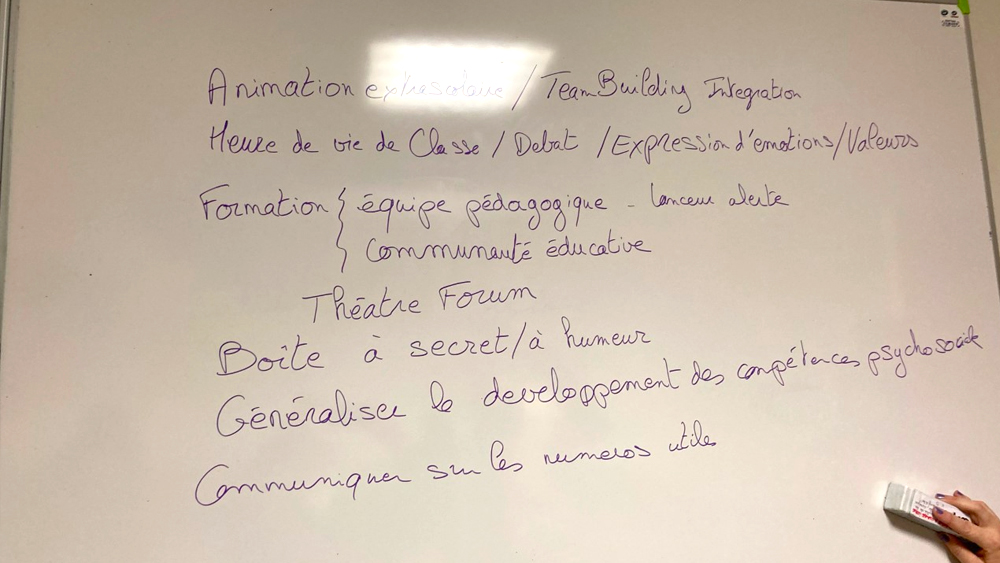 Animation extrascolaire / Team Building Integration
Heure de vie de Classe / Debat / Expression d'emotions / Valeurs
Formation { équipe pédagogique - lanceur alerte
{ Communauté éducative
Théatre Forum
Boîte à secret / à humeur
Généraliser le developpement des compétences psychosociale
Communiquer sur les numeros utiles